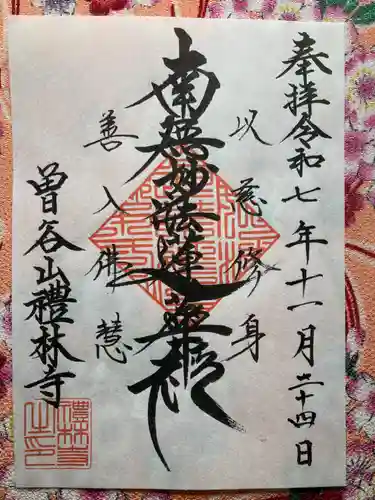 奉拝令和七年十一月二十四日
以慈修身
南無妙法蓮華経
善入佛慧
曽谷山禮林寺
禮林寺之印